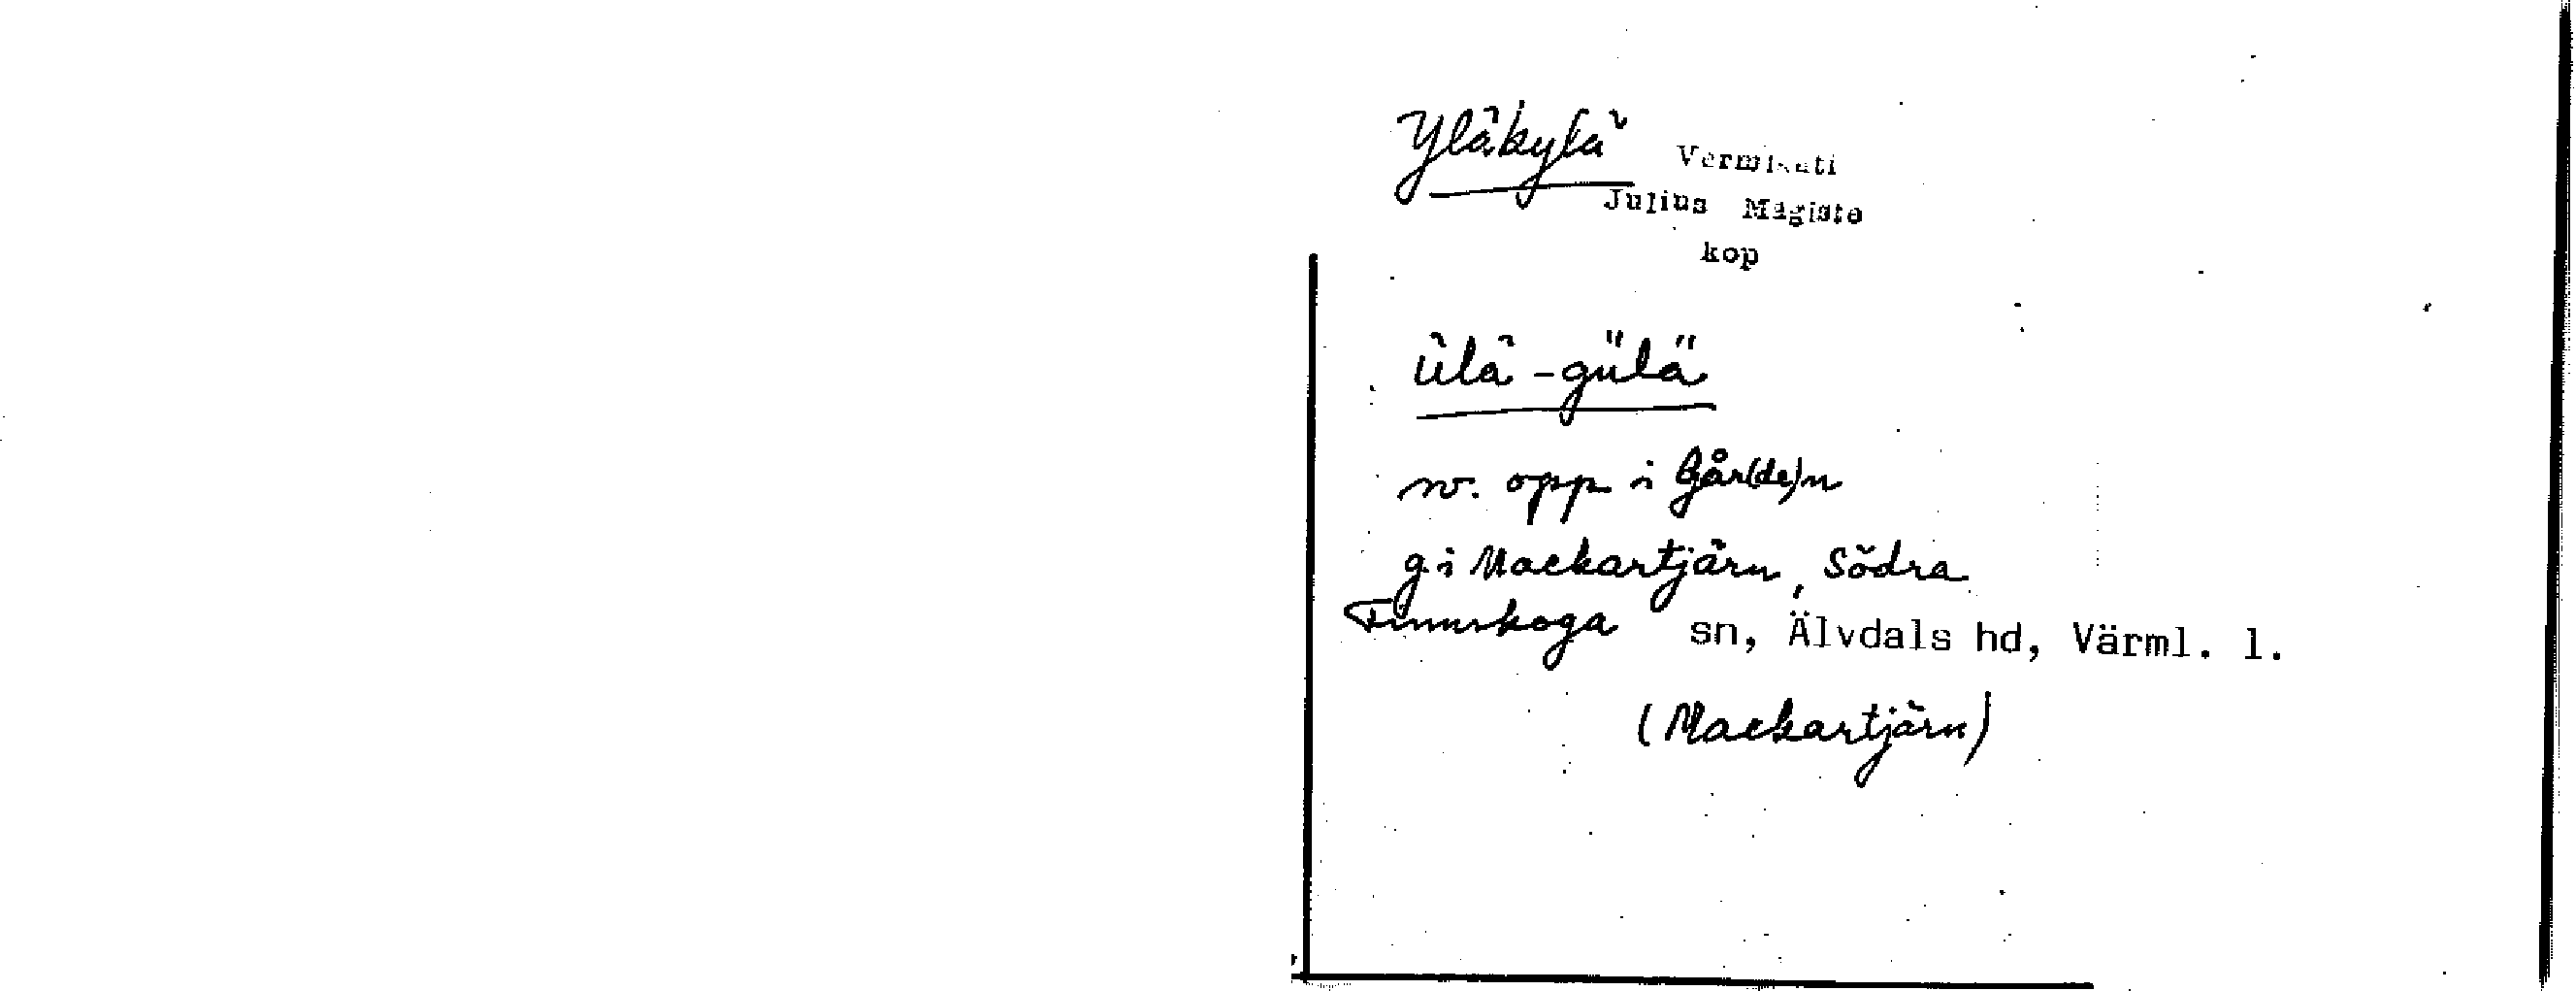 Yläkylä
Vermlanti
Julius Mägiste
kop
ülä-gülä
rv. opp i Går(de)n
g i Mackartjärn, Södra
Finnskoga sn, Älvdals hd, Värml. l.
(Mackartjärn)